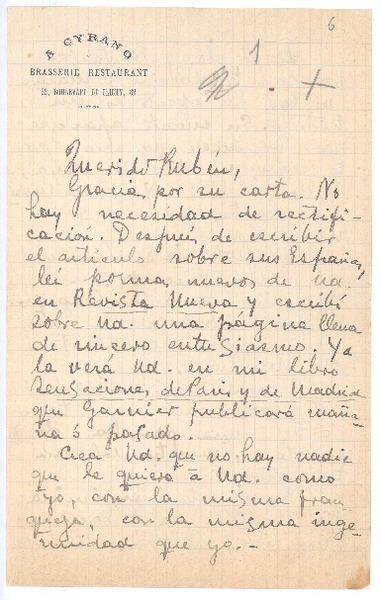 6
A CYRANO
BRASSERIE RESTAURANT
82, BOULEVARD DE CLICHY, 82
1
Querido Rubén,
Gracias por su carta. No
hay necesidad de rectifi-
cación. Después de escribir
el artículo sobre sus Españas,
leí poemas nuevos de Ud.
en Revista Nueva y escribí
sobre Ud. una página llena
de sincero entusiasmo. Ya
la verá Ud. en mi libro
Sensaciones de Paris y de Madrid
que Garnier publicará maña-
na ó pasado.
Crea Ud. que no hay nadie
que le quiera á Ud. como
yo, con la misma fran-
queza, con la misma inge-
nuidad que yo.-